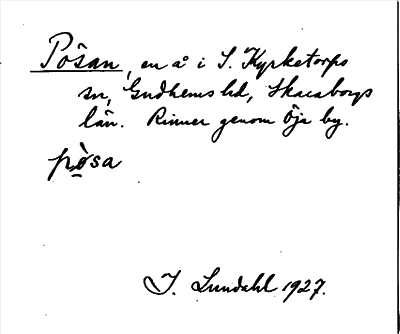 Pösan, en å i S. Kyrketorps
sn, Gudhems hd, Skaraborgs
län. Rinner genom Öja by.
pò̠sa
I. Lundahl 1927.